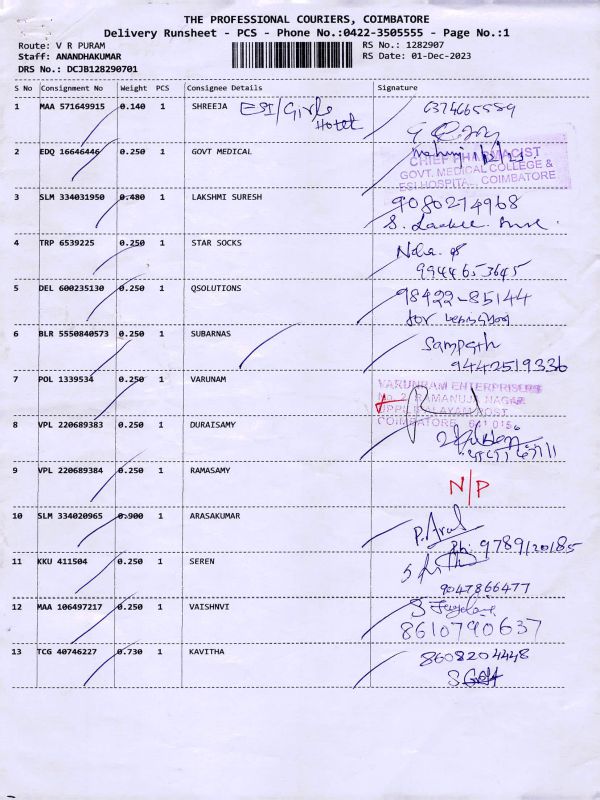 THE PROFESSIONAL COURIERS, COIMBATORE
Delivery Runsheet - PCS - Phone No.:0422-3505555 - Page No.:1
Route: V R PURAM RS No.: 1282907
Staff: ANANDHAKUMAR RS Date: 01-Dec-2023
DRS No.: DCJB128290701
S No Consignment No Weight PCS Consignee Details Signature
1 MAA 571649915 0.140 1 SHREEJA ESI/Girls Hotel
2 EDQ 16646446 0.250 1 GOVT MEDICAL
CHIEF PHARMACIST
GOVT. MEDICAL COLLEGE &
ESI HOSPITAL, COIMBATORE
3 SLM 334031950 0.480 1 LAKSHMI SURESH 9080274968
4 TRP 6539225 0.250 1 STAR SOCKS
9944653645
5 DEL 600235130 0.250 1 QSOLUTIONS 98422-85144
for
6 BLR 5550840573 0.250 1 SUBARNAS Sampath
9442519336
7 POL 1339534 0.250 1 VARUNAM
VARUNRAM ENTERPRISERS
No. 2, RAMANUJA NAGAR
UPPILIPALAYAM POST
COIMBATORE 641 015
8 VPL 220689383 0.250 1 DURAISAMY
9 VPL 220689384 0.250 1 RAMASAMY N/P
10 SLM 334020965 0.900 1 ARASAKUMAR P. Aral
Ph: 9789120185
11 KKU 411504 0.250 1 SEREN
9047866477
12 MAA 106497217 0.250 1 VAISHNVI
8610790637
13 TCG 40746227 0.730 1 KAVITHA 8608204448